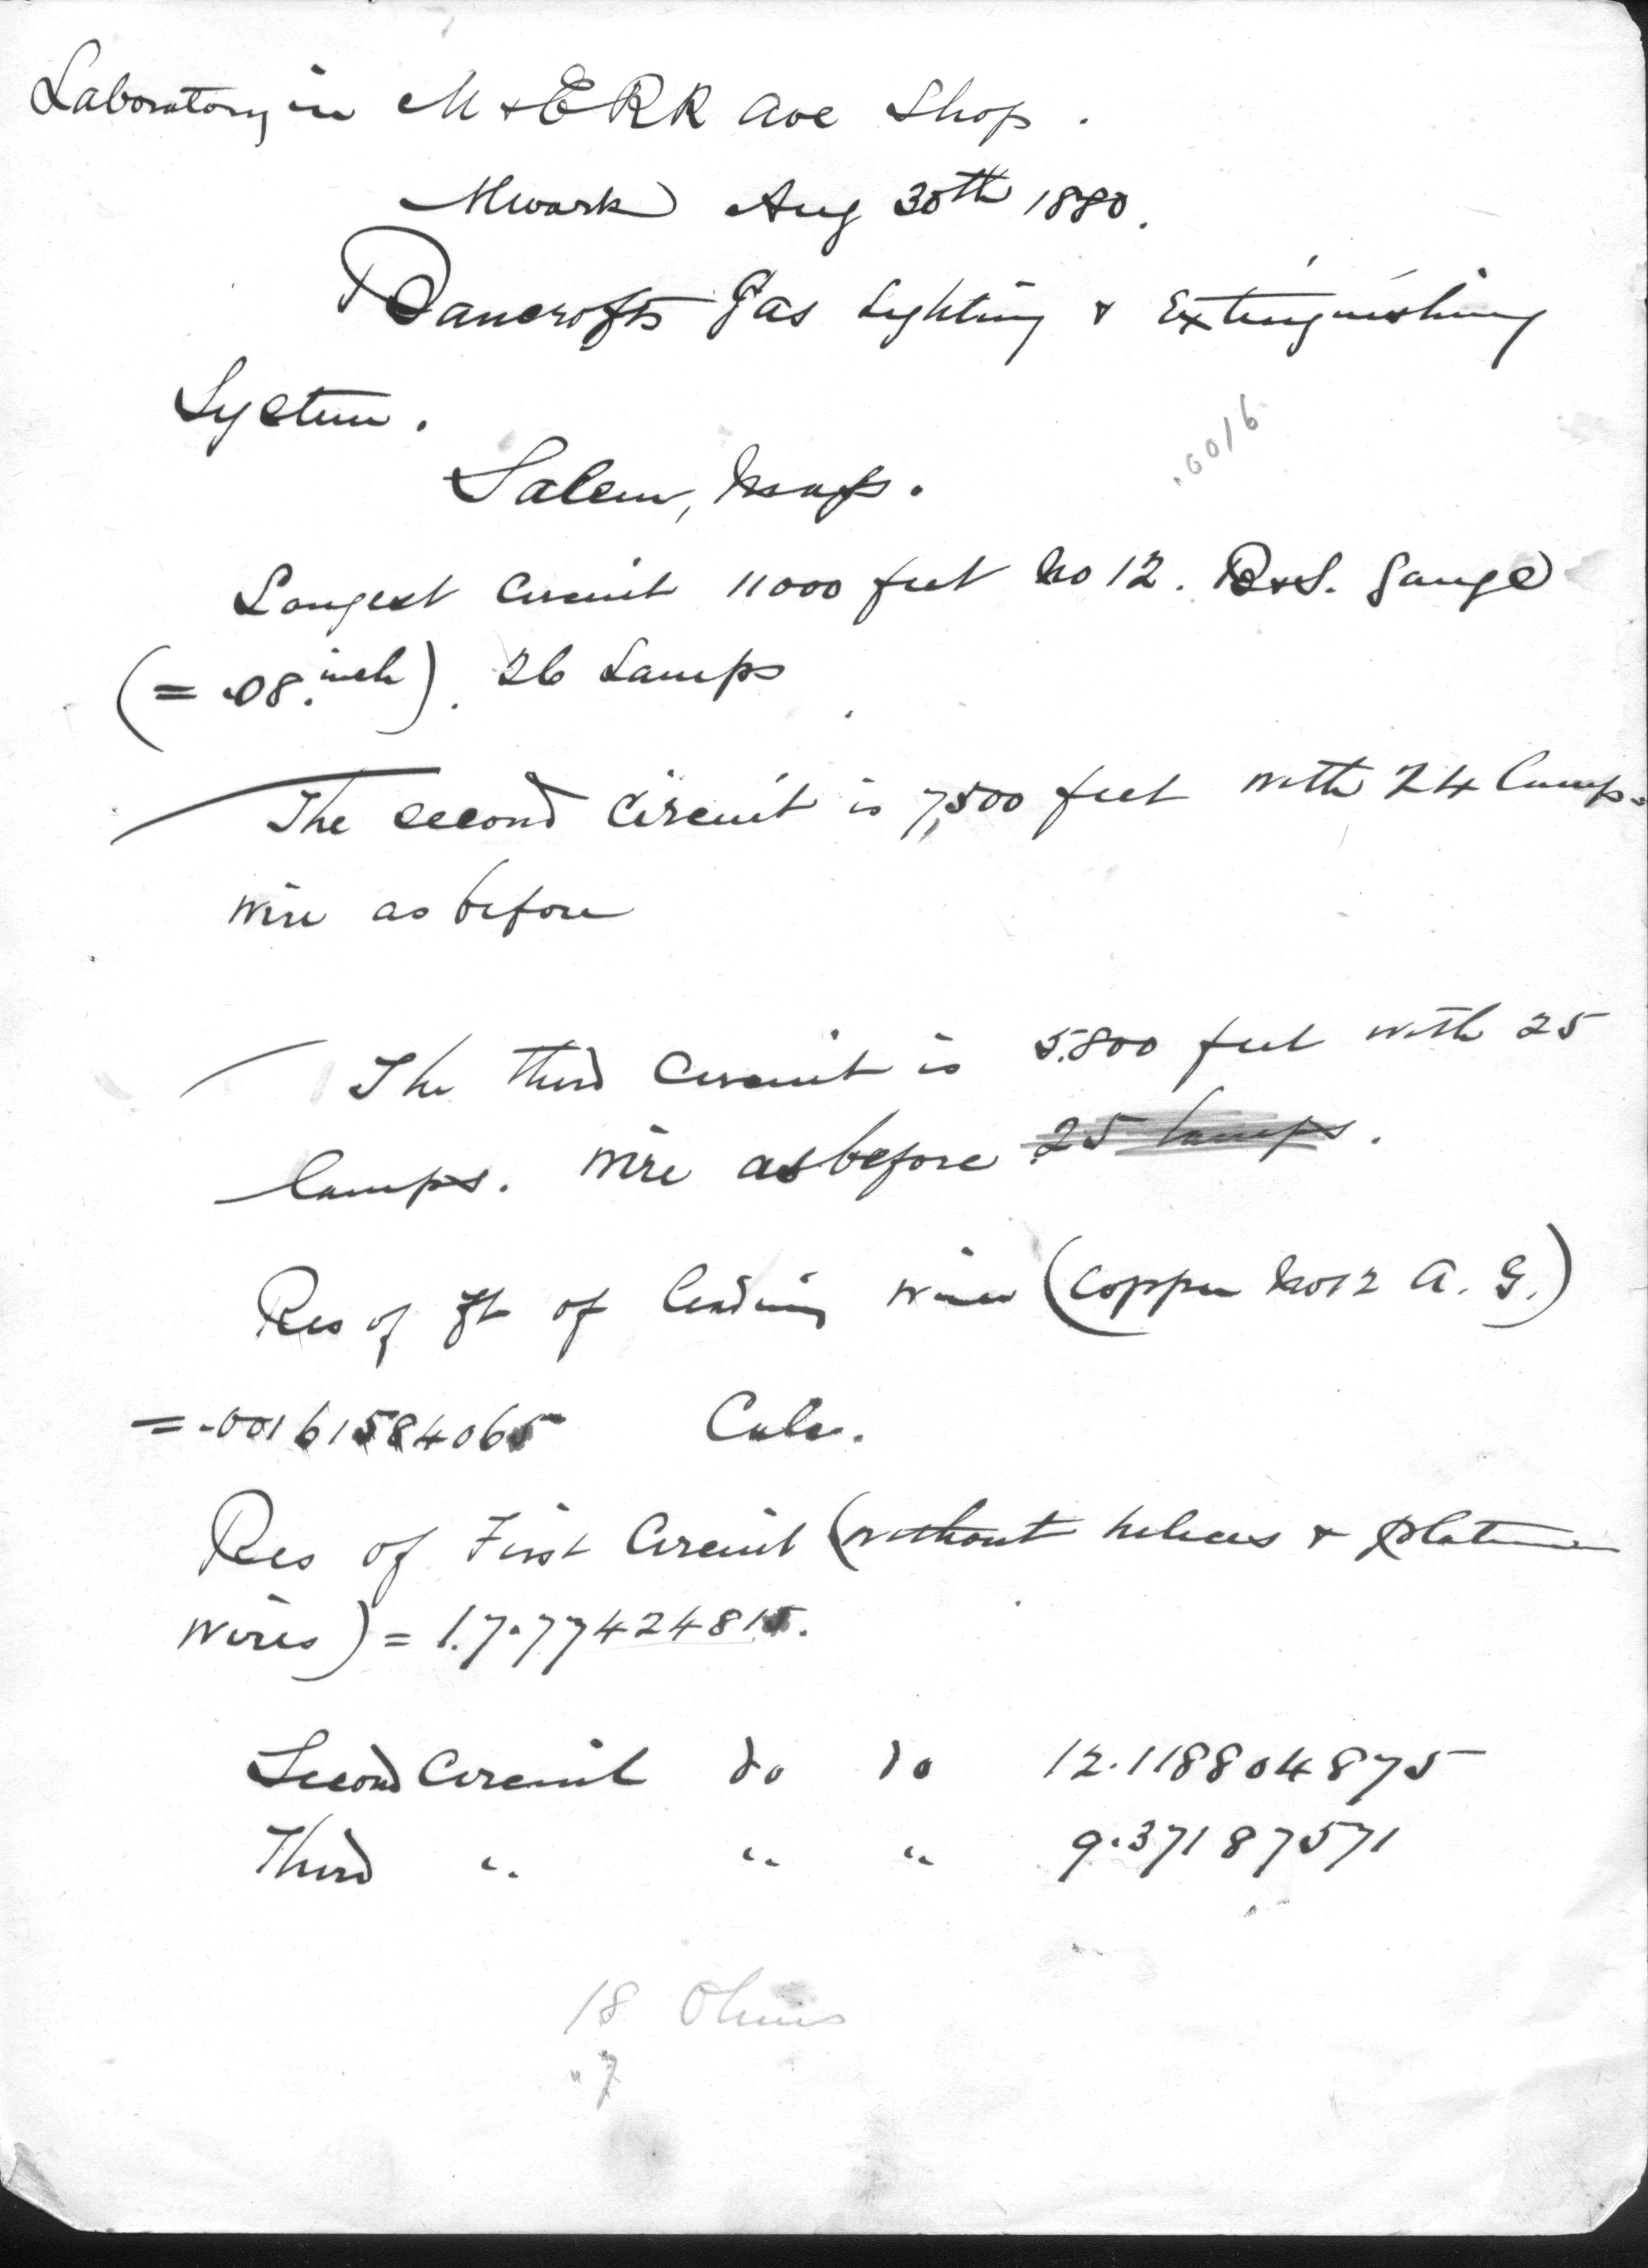 Laboratory in M & E RR Ave Shop.
Newark Aug 30th 1880.
Bancrofts Gas Lighting & Extinguishing
System.
.0016
Salem, Mass.
Longest Circuit 11000 feet No 12. B&S. Gauge
(= .08. inch). 26 Lamps
The second Circuit is 7,500 feet with 24 lamps
wire as before
The third Circuit is 5.800 feet with 25
lamps. Wire as before 25 lamps.
Res of ft of leading wires (Copper No 12 A. G.)
= .00161584065 Calc.
Res of First Circuit (without helices & platinum
wires) = 17.77424815.
Second Circuit do do 12.118804875
Third " " " 9.37187571
18 Ohms
" 7